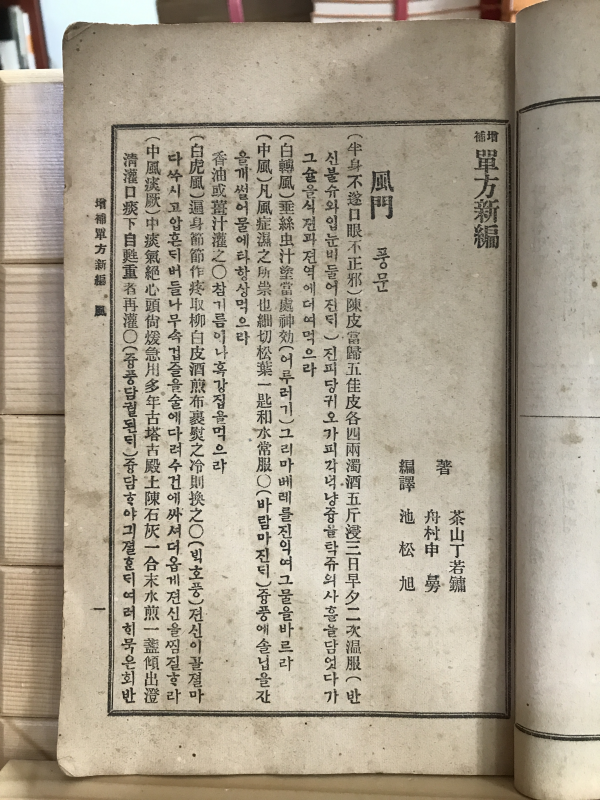 增補 單方新編
茶山 丁若鏞
著
舟村 申曼
編譯 池松旭
風門 풍문
(半身不遂口眼不正邪) 陳皮當歸五佳皮各四兩濁酒五斤浸三日早夕二次溫服 (반
신불슈와입눈비들어진ᄃᆡ) 진피당귀오가피각넉냥즁을탁쥬의사흘을담엇다가
그술을식젼과젼역에더여먹으라
(白轉風) 垂絲虫汁塗當處神効 (어루러기) 그리마베레를진익여그물을바르라
(中風) 凡風症濕之所祟也細切松葉一匙和水常服〇(바람마진ᄃᆡ) 즁풍에솔닙을잔
을개썰어물에타항상먹으라
香油或薑汁灌之〇참기름이나혹강집을먹으라
(白虎風) 遍身節節作疼取柳白皮酒煎布裹熨之冷則換之〇(ᄇᆡᆨ호풍) 젼신이골졀마
다쑥시고압흔ᄃᆡ버들나무속겁즐을술에다려수건에싸셔더웁게젼신을찜질ᄒᆞ라
(中風痰厥) 中痰氣絕心頭尙煖急用多年古塔古殿土陳石灰一合末水煎一盞傾出澄
淸灌口痰下自甦重者再灌〇(즁풍담궐된ᄃᆡ) 즁담ᄒᆞ야긔졀ᄒᆞᆫᄃᆡ여러ᄒᆡ묵은회반
增補單方新編 風
一